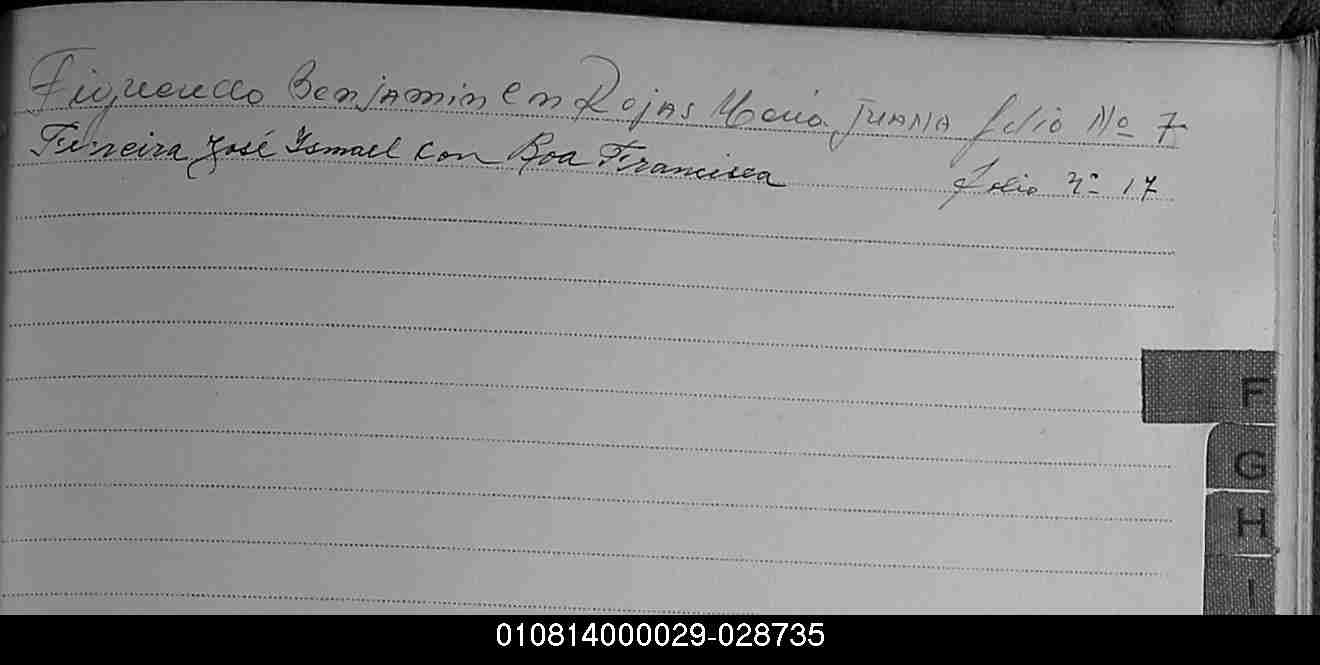 Figueredo Benjamin en Rojas Maria Juana folio Nº 7
Ferreira José Ismael con Roa Francisca folio nº 17
F
G
H
I
010814000029-028735